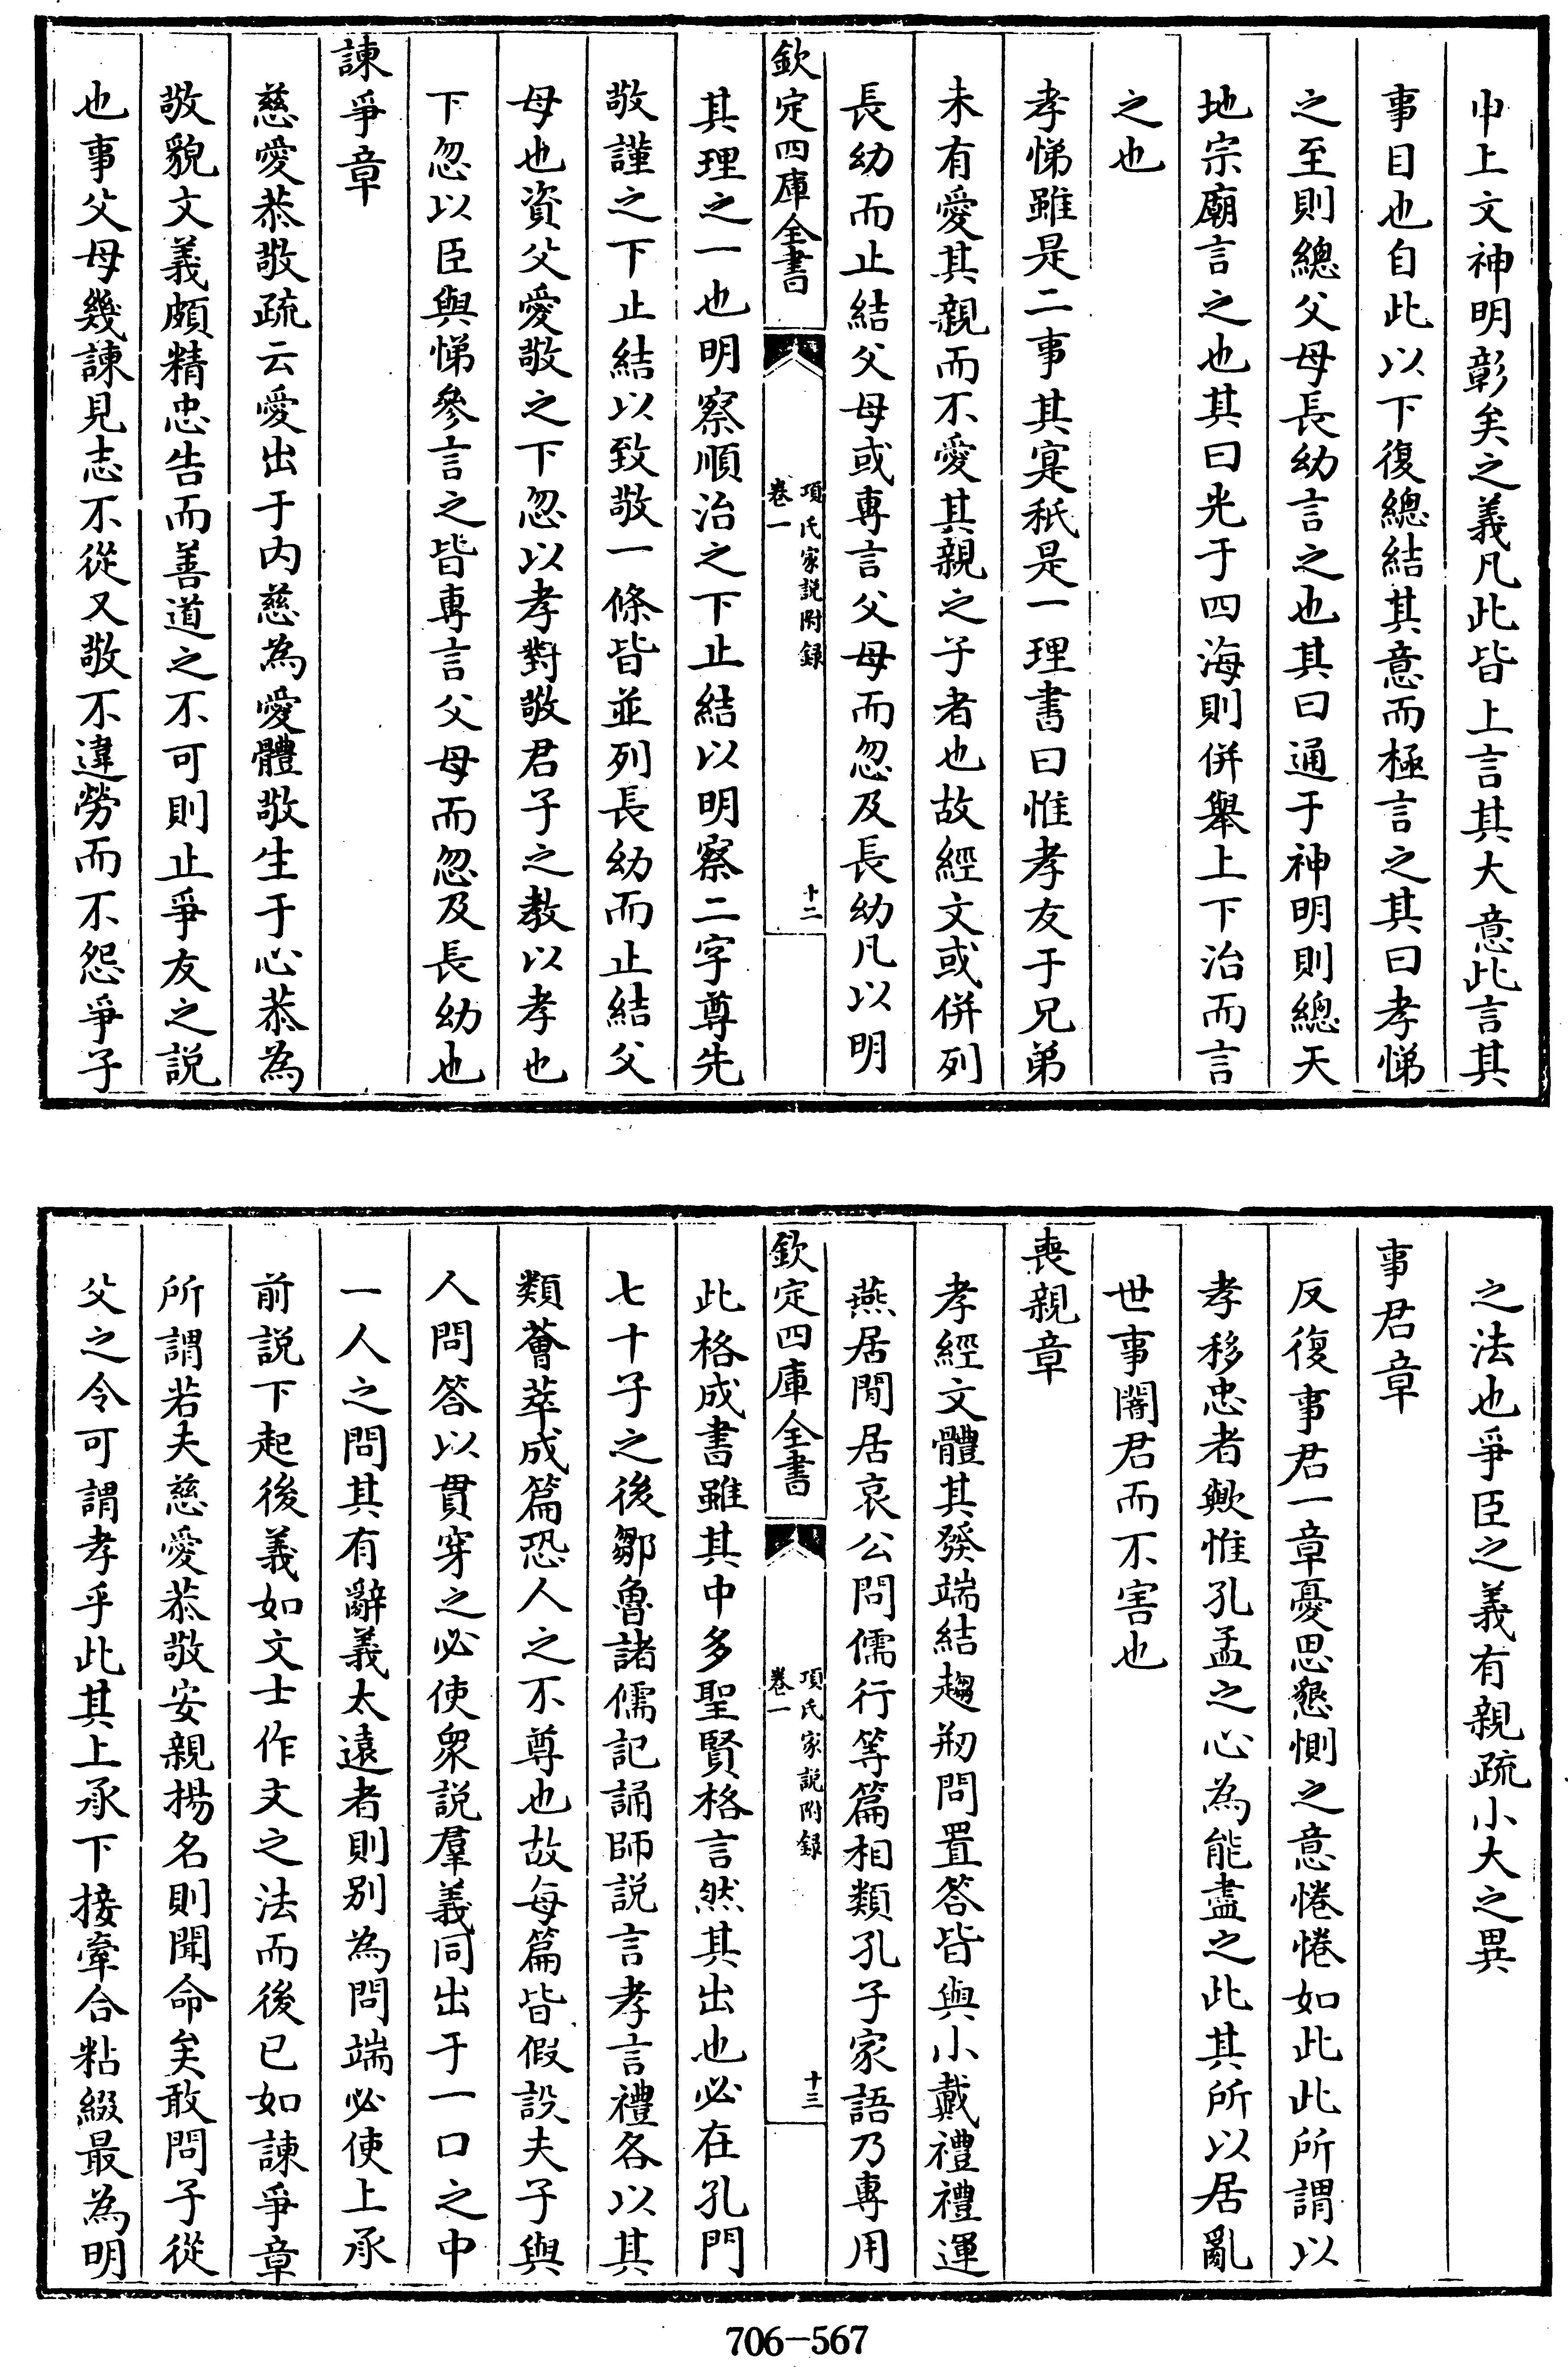 申上文神明彰矣之義凡此皆上言其大意此言其
事目也自此以下復總結其意而極言之其曰孝悌
之至則總父母長幼言之也其曰通于神明則總天
地宗廟言之也其曰光于四海則併舉上下治而言
之也
孝悌雖是二事其寔秖是一理書曰惟孝友于兄弟
未有愛其親而不愛其親之子者也故經文或併列
長幼而止結父母或專言父母而忽及長幼凡以明
欽定四庫全書
項氏家説附録
卷一
十二
其理之一也明察順治之下止結以明察二字尊先
敬謹之下止結以致敬一條皆並列長幼而止結父
母也資父愛敬之下忽以孝對敬君子之教以孝也
下忽以臣與悌參言之皆專言父母而忽及長幼也
諫爭章
慈愛恭敬疏云愛出于内慈為愛體敬生于心恭為
敬貌文義頗精忠告而善道之不可則止爭友之説
也事父母幾諫見志不從又敬不違勞而不怨爭子
之法也爭臣之義有親疏小大之異
事君章
反復事君一章憂思懇惻之意惓惓如此此所謂以
孝移忠者歟惟孔孟之心為能盡之此其所以居亂
世事闇君而不害也
喪親章
孝經文體其發端結趨刱問置答皆與小戴禮禮運
燕居閒居哀公問儒行等篇相類孔子家語乃專用
欽定四庫全書
項氏家説附録
卷一
十三
此格成書雖其中多聖賢格言然其出也必在孔門
七十子之後鄒魯諸儒記誦師説言孝言禮各以其
類薈萃成篇恐人之不尊也故每篇皆假設夫子與
人問答以貫穿之必使衆説羣義同出于一口之中
一人之問其有辭義太遠者則別為問端必使上承
前説下起後義如文士作文之法而後已如諫爭章
所謂若夫慈愛恭敬安親揚名則聞命矣敢問子從
父之令可謂孝乎此其上承下接牽合粘綴最為明
706-567